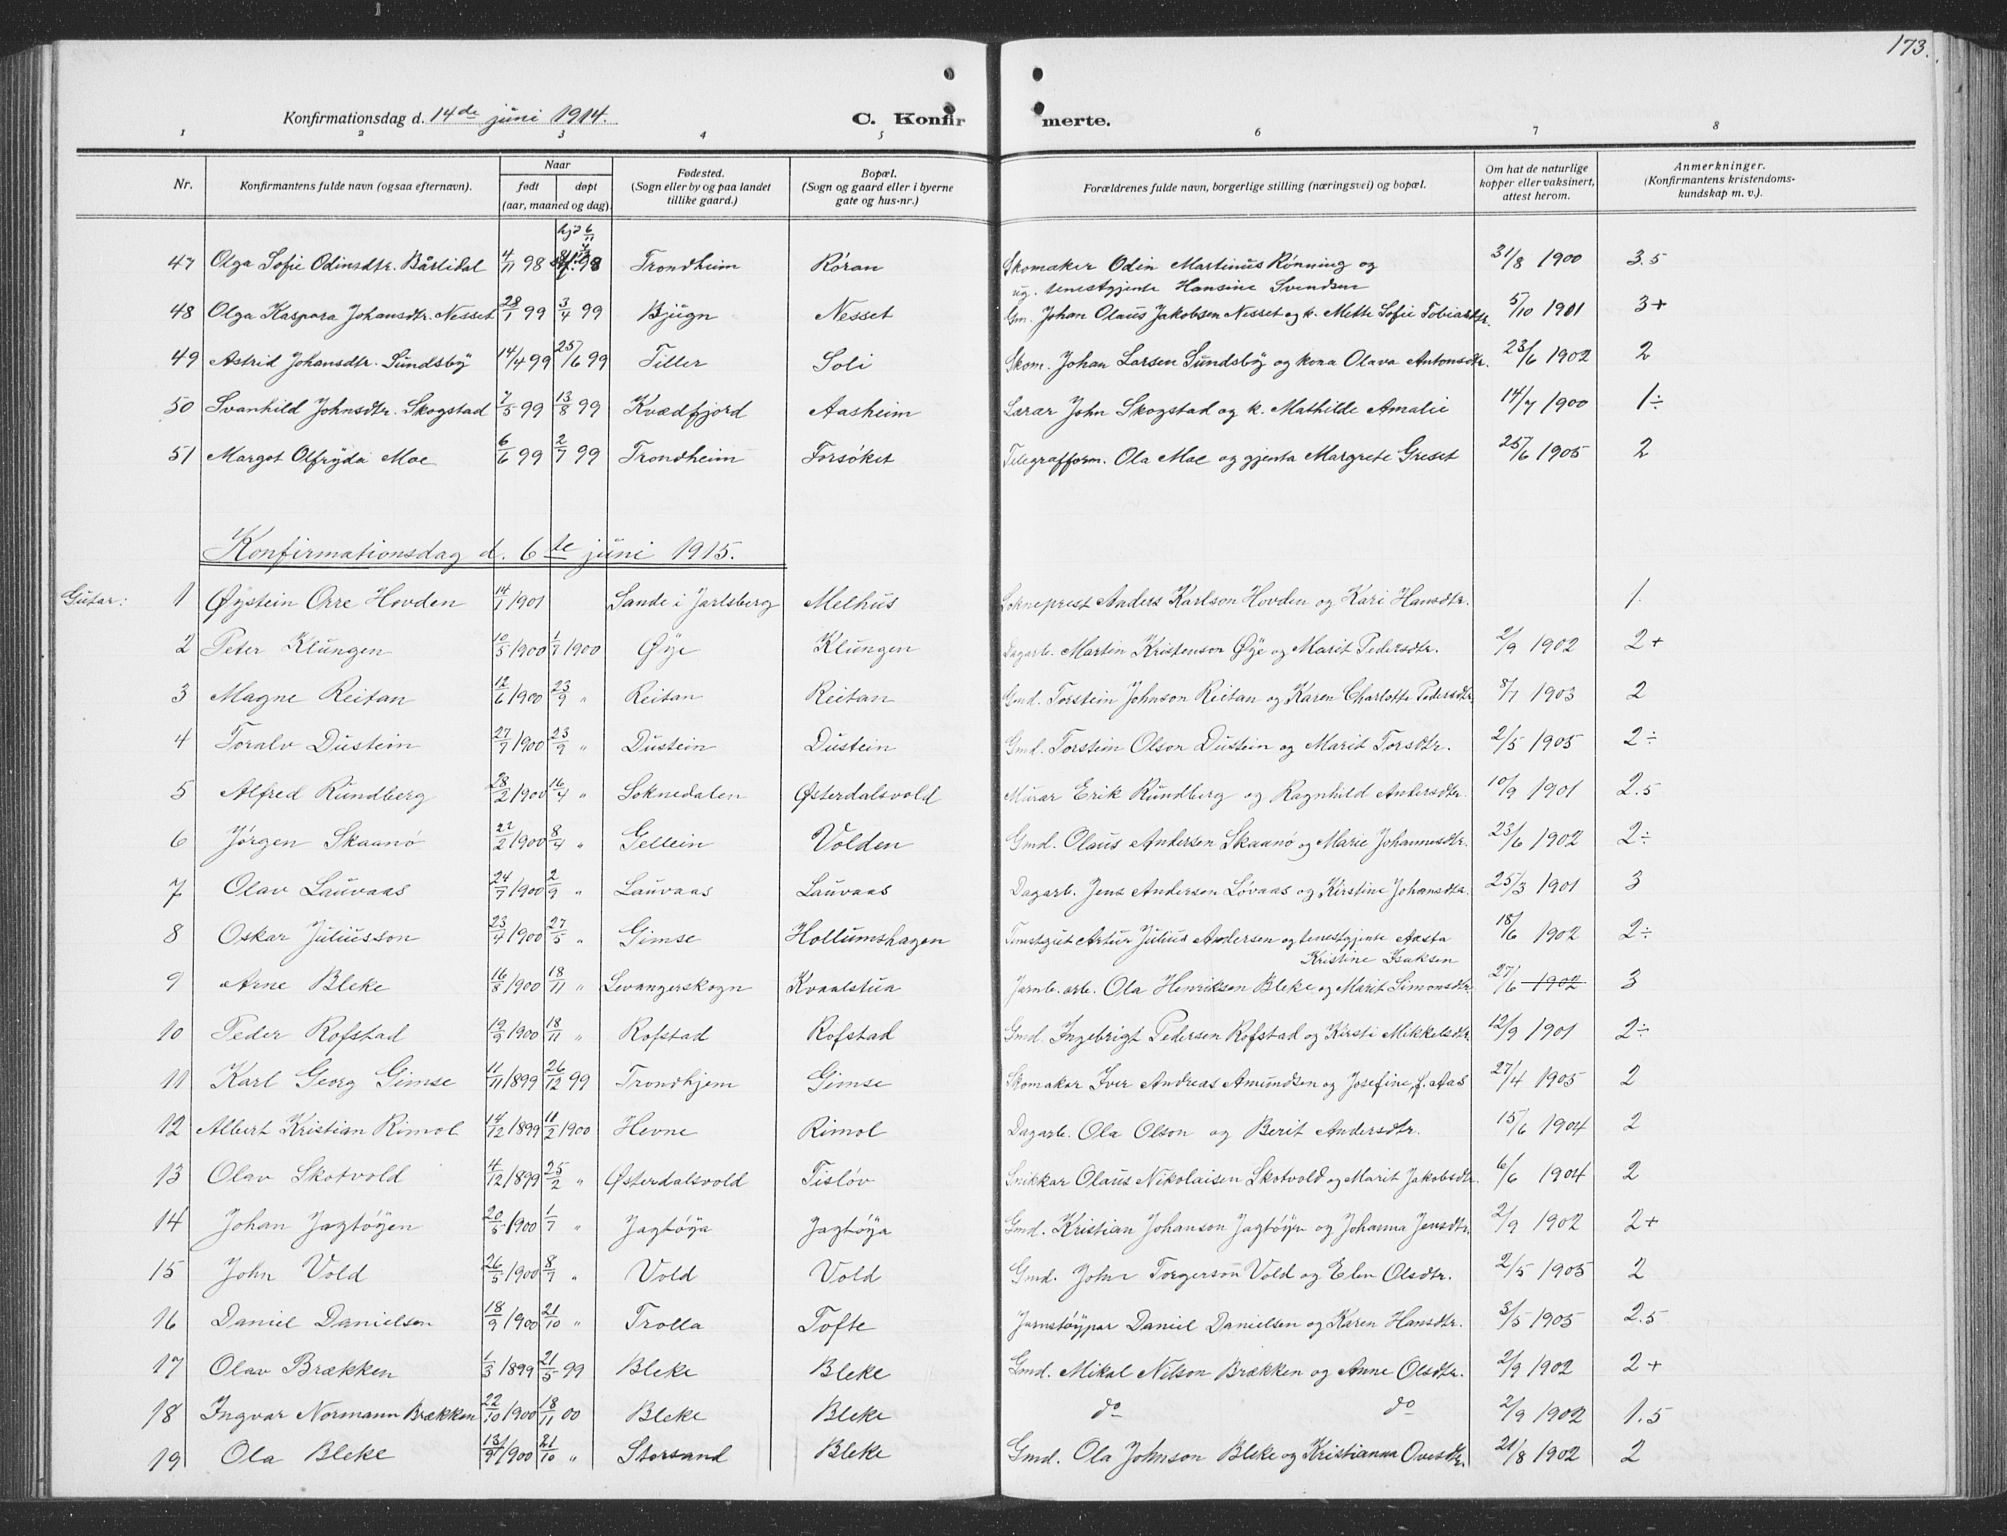 173.
Konfirmationsdag d. 14de juni 1914. C. Konfirmerte.
1 2 3 4 5 6 7 8
Nr. Konfirmantens fulde navn (ogsaa efternavn). Naar født døpt (aar, maaned og dag). Fødested. (Sogn eller by og paa landet tillike gaard.) Bopæl. (Sogn og gaard eller i byerne gate og hus-nr.) Forældrenes fulde navn, borgerlige stilling (næringsvei) og bopæl. Om hat de naturlige kopper eller vaksinert, attest herom. Anmerkninger. (Konfirmantens kristendoms-kundskap m. v.).
47 Olga Sofie Odinsdtr. Bårlidal 4/11 98 hjd 6/11 98 Trondheim Røran Skomaker Odin Martinus Rønning og 31/8 1900 3.5
ug. tenestgjente Hansine Svendsen
48 Olga Kaspara Johansdtr. Nesset 28/1 99 3/4 99 Bjugn Nesset Gm. Johan Olaus Jakobsen Nesset og k. Mette Sofie Tobiasdtr. 5/10 1901 3+
49 Astrid Johansdtr. Sundsby 14/4 99 25/6 99 Tiller Soli Skom. Johan Larsen Sundsby og kona Olava Antonsdtr. 23/6 1902 2
50 Svanhild Johnsdtr. Skogstad 7/5 99 13/8 99 Kvædfjord Aasheim Lærar John Skogstad og k. Mathilde Amalie 14/7 1900 1÷
51 Margot Olfryda Moe 6/6 99 2/7 99 Trondheim Forsøket Telegrafform. Ola Moe og gjenta Margrete Greset 25/6 1905 2
Konfirmationsdag d. 6te juni 1915.
Gutar: 1 Øystein Orre Hovden 14/1 1901 Sande i Jarlsberg Melhus Sokneprest Anders Karlson Hovden og Kari Hansdtr. 1.
2 Peter Klungen 10/5 1900 1/7 1900 Øye Klungen Dagarb. Martin Kristenson Øye og Marit Pedersdtr. 2/9 1902 2+
3 Magne Reitan 12/6 1900 23/9 " Reitan Reitan Gmd. Torstein Johnson Reitan og Karen Charlotte Pedersdtr. 8/7 1903 2
4 Toralv Dustein 27/7 1900 23/9 " Dustein Dustein Gmd. Torstein Olson Dustein og Marit Torsdtr. 2/5 1905 2÷
5 Alfred Rundberg 28/2 1900 16/4 " Soknedalen Østerdalsvold Murar Erik Rundberg og Ragnhild Andersdtr. 10/9 1901 2.5
6 Jørgen Skaanø 22/2 1900 8/4 " Gellein Volden Gmd. Olaus Andersen Skaanø og Marie Johannesdtr. 23/6 1902 2÷
7 Olav Lauvaas 24/7 1900 2/9 " Lauvaas Lauvaas Dagarb. Jens Andersen Løvaas og Kirstine Johansdtr. 25/3 1901 3
8 Oskar Juliusson 23/4 1900 27/5 " Gimse Hollumshagen Tenestgut Artur Julius Andersen og tenestgjente Aasta 18/6 1902 2÷
Kristine Isaksen
9 Arne Bleke 16/8 1900 18/11 " Levangerskogn Kvaalstua Jarnb. arb. Ola Henriksen Bleke og Marit Simonsdtr. 27/6 1902 3
10 Peder Rofstad 19/9 1900 18/11 " Rofstad Rofstad Gmd. Ingebrigt Pedersen Rofstad og Kirsti Mikkelsdtr. 12/9 1901 2÷
11 Karl Georg Gimse 11/11 1899 26/12 99 Trondhjem Gimse Skomakar Iver Andreas Amundsen og Josefine, f. Aas 27/4 1905 2
12 Albert Kristian Rimol 14/12 1899 11/2 1900 Hevne Rimol Dagarb. Ola Olson og Berit Andersdtr. 15/6 1904 2
13 Olav Skotvold 4/12 1899 25/2 " Østerdalsvold Tisløv Snikkar Olaus Nikolaisen Skotvold og Marit Jakobsdtr. 6/6 1904 2
14 Johan Jagtøyen 20/5 1900 1/7 " Jagtøya Jagtøya Gmd. Kristian Johanson Jagtøyn og Johanna Jensdtr. 2/9 1902 2+
15 John Vold 26/5 1900 8/7 " Vold Vold Gmd. John Torgerson Vold og Elen Olsdtr. 2/5 1905 2
16 Daniel Danielsen 18/9 1900 21/10 " Trolla Tofte Jarnstøypar Daniel Danielsen og Karen Hansdtr. 3/5 1905 2.5
17 Olav Brækken 1/3 1899 21/5 99 Bleke Bleke Gmd. Mikal Nilson Brækken og Anne Olsdtr. 2/9 1902 2+
18 Ingvar Normann Brækken 22/10 1900 18/11 00 Bleke Bleke do do 2/9 1902 1.5
19 Ola Bleke 13/9 1900 21/10 " Storsand Bleke Gmd. Ola Johnson Bleke og Kristianna Ovesdtr. 21/8 1902 2